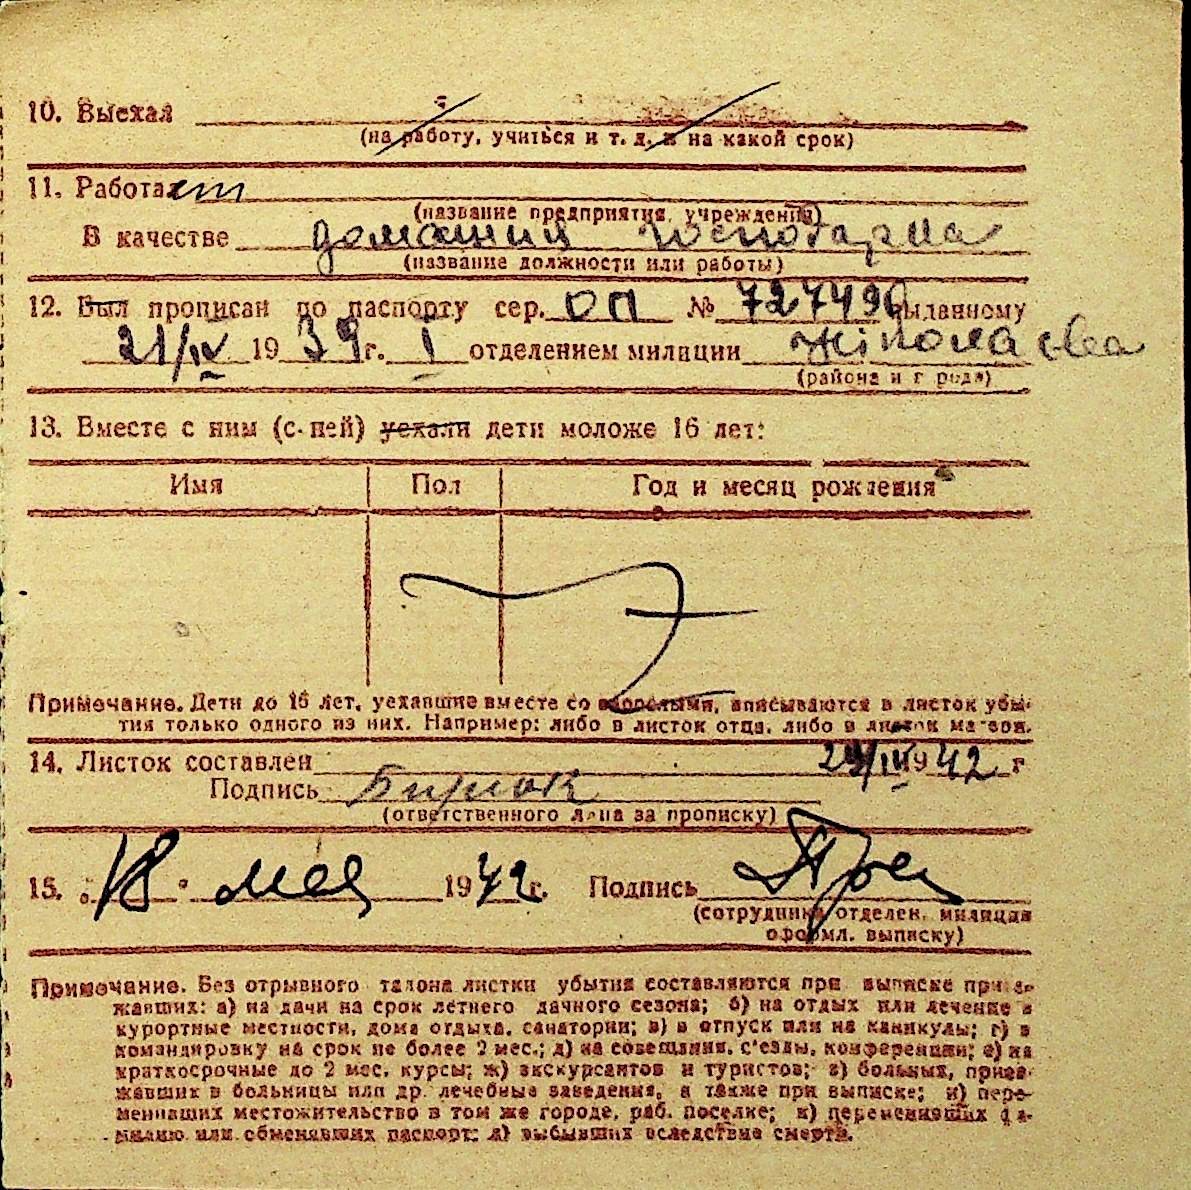 10. Выехал
(на работу, учиться и т. д. и на какой срок)
11. Работает
(название предприятия, учреждения)
В качестве домашния господарка
(название должности или работы)
12. Был прописан по паспорту сер. ОП № 727496 выданному
21/IV 1939 г. I отделением милиции
(района и города)
13. Вместе с ним (с ней) уехали дети моложе 16 лет:
Имя Пол Год и месяц рождения
Примечание. Дети до 16 лет, уехавшие вместе со взрослыми, вписываются в листок убы-
тия только одного из них. Например: либо в листок отца, либо в листок матери.
14. Листок составлен 1942 г
Подпись Бирюк
(ответственного лица за прописку)
15. „18" мая 1942 г. Подпись
(сотрудника отделен. милиции
оформл. выписку)
Примечание. Без отрывного талона листки убытия составляются при выписке приез-
жавших: а) на дачи на срок летнего дачного сезона; б) на отдых или лечение в
курортные местности, дома отдыха, санатории; в) в отпуск или на каникулы; г) в
командировку на срок не более 2 мес.; д) на совещания, с'езды, конференции; е) на
краткосрочные до 2 мес. курсы; ж) экскурсантов и туристов; з) больных, приез-
жавших в больницы или др. лечебные заведения, а также при выписке; и) пере-
менивших местожительство в том же городе, раб. поселке; к) переменивших фа-
милию или обменявших паспорт; л) выбывших вследствие смерти.